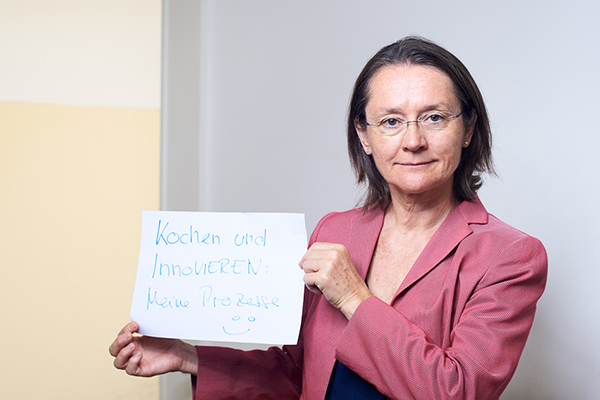 Kochen und
INNOVIEREN:
Meine Prozesse